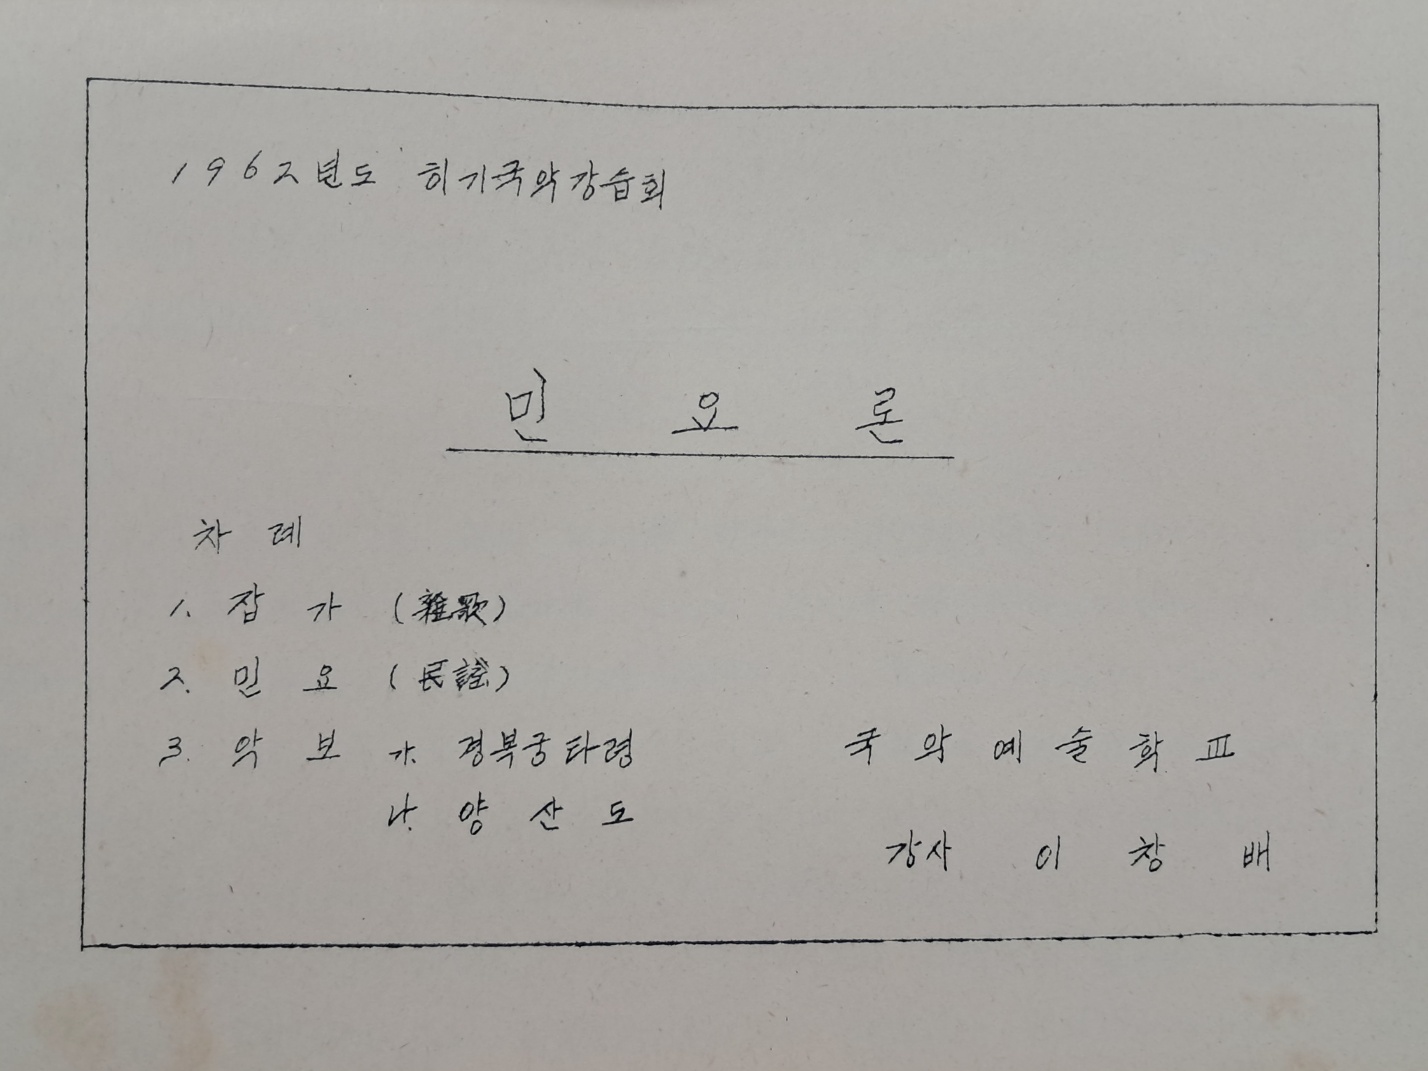 1962년도 히기국악강습회
민 요 론
차 례
1. 잡 가 (雜歌)
2. 민 요 (民謠)
3. 악 보 가. 경복궁타령
나. 양 산 도
국 악 예 술 학 교
강사 이 창 배